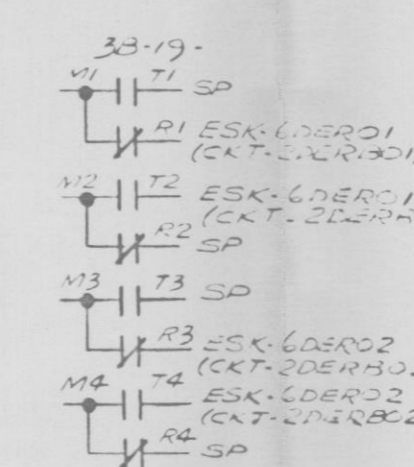 3B-19-
M1 T1 SP
R1 ESK-6DERO1
(CKT-2DERBO1
M2 T2 ESK-6DERO1
(CKT-2DERB
R2 SP
M3 T3 SP
R3 ESK-6DERO2
(CKT-2DERBO
M4 T4 ESK-6DERO2
(CKT-2DERBO2
R4 SP